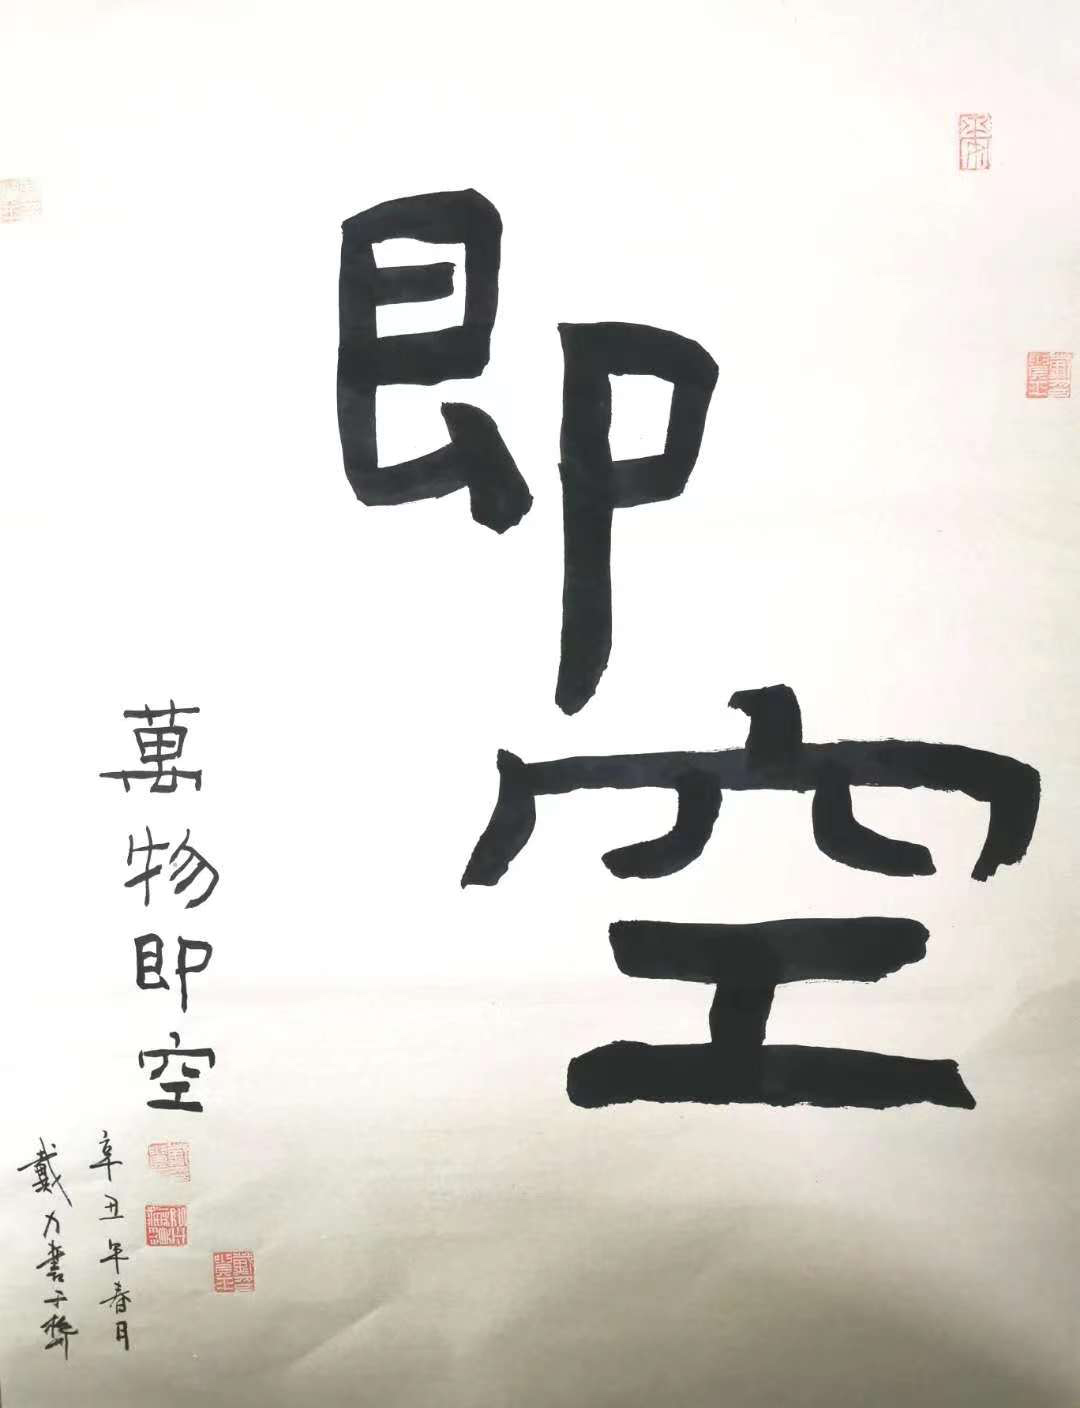 即空
萬物即空
辛丑年春月
戴力書于